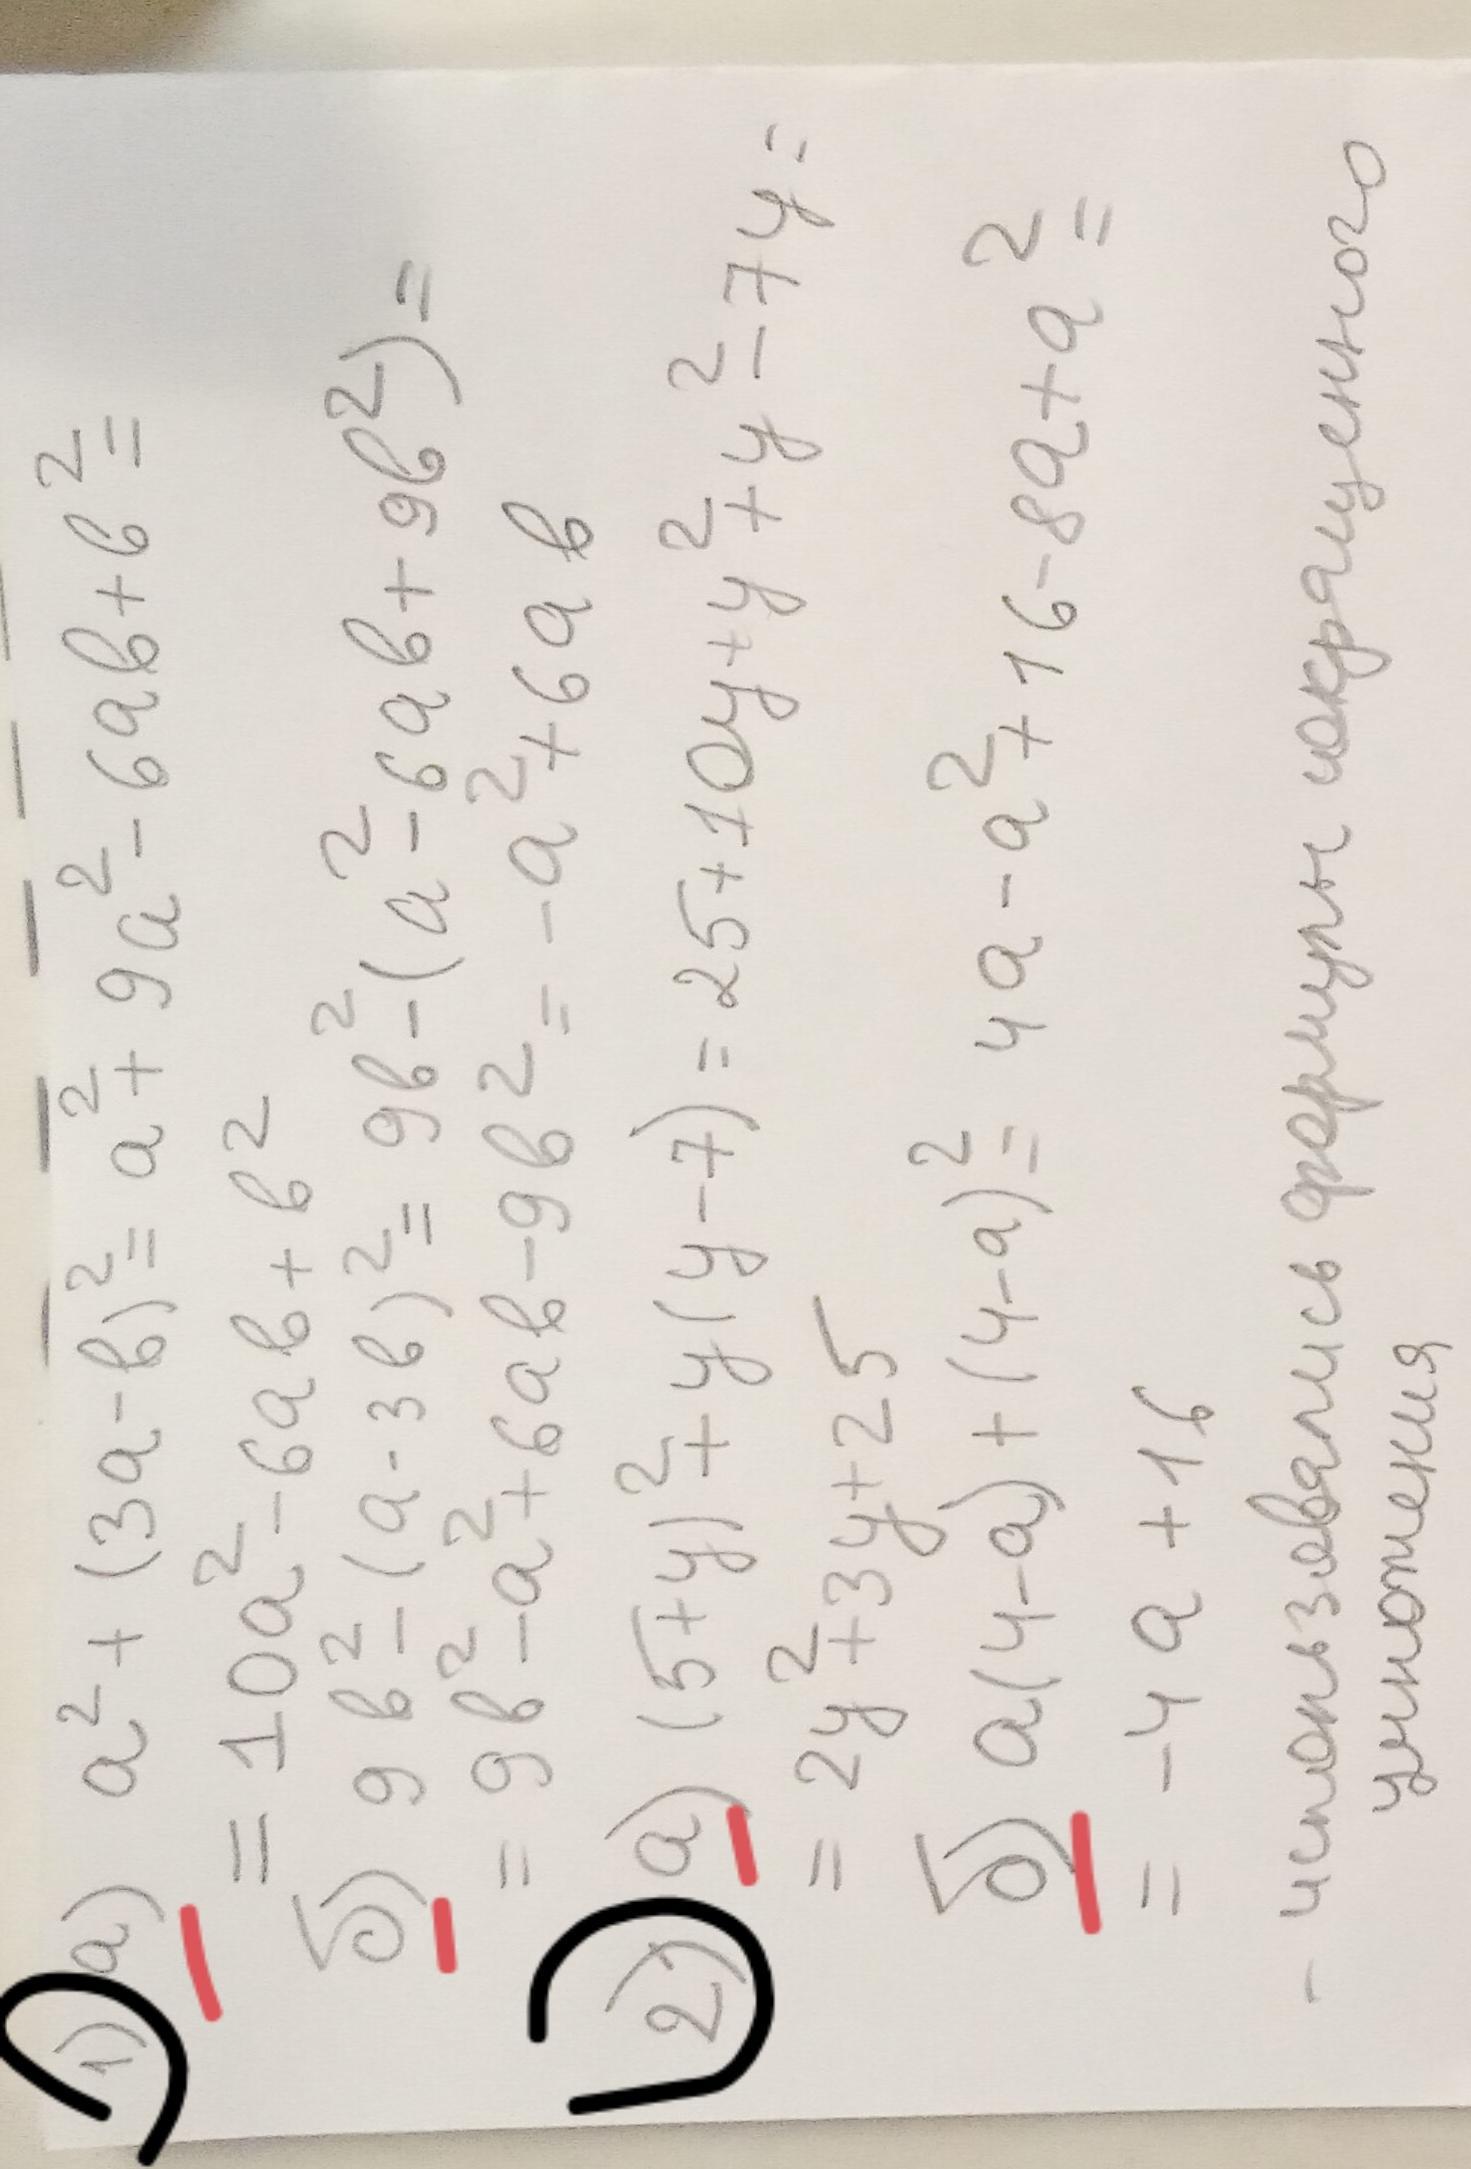 1) а) a² + (3a - b)² = a² + 9a² - 6ab + b² =
= 10a² - 6ab + b²
б) 9b² - (a - 3b)² = 9b² - (a² - 6ab + 9b²) =
= 9b² - a² + 6ab - 9b² = -a² + 6ab
2) а) (5+y)² + y(y-7) = 25 + 10y + y² + y² - 7y =
= 2y² + 3y + 25
б) a(4-a) + (4-a)² = 4a - a² + 16 - 8a + a² =
= -4a + 16
- использовались формулы сокращенного
умножения